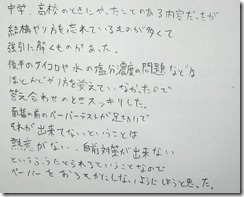 中学、高校のときにやったことのある内容だったが
結構やり方を忘れているものが多くて
強引に解くものがあった。
後半のサイコロや水の塩分濃度の問題などは
ほとんどやり方を覚えていなかったので
答え合わせのときスッキリした。
面接の前のペーパーテストが足きりで
それが出来てないということは
熱意がない、自前対策が出来ない
というふうにとられるということなので
ペーパーをおろそかにしないようにしようと思った。